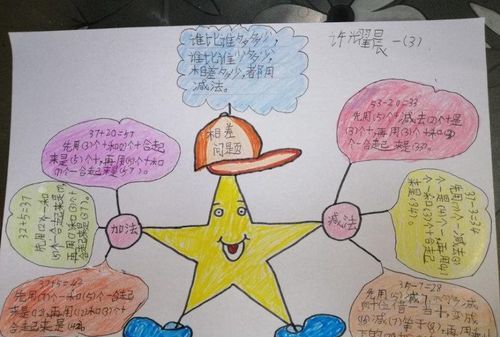 谁比谁多多少,
谁比谁少多少,
相差多少,都用
减法。
许耀晨 一(3)
相差
问题
37+20=57
先用(3)个十和(2)个十合起
来是(5)个十,再用(5)个十和
(7)个一合起来是(57)。
32+5=37
先用(2)个一和
(5)个一合起来是(7)个一,
再用(3)个十
合起来是(37)。
加法
37+5=42
先用(7)个一和(5)个一合起
来是(12),再用(12)和(3)个十
合起来是(42)。
53-20=33
先用(5)个十减去(2)个十是
(3)个十,再用(3)个十和(3)
个一合起来是(33)。
减法
37-3=34
先用(7)个一减(3)
个一是(4)个一,再用(4)
个一和(3)个十合起
来是(34)。
35-7=28